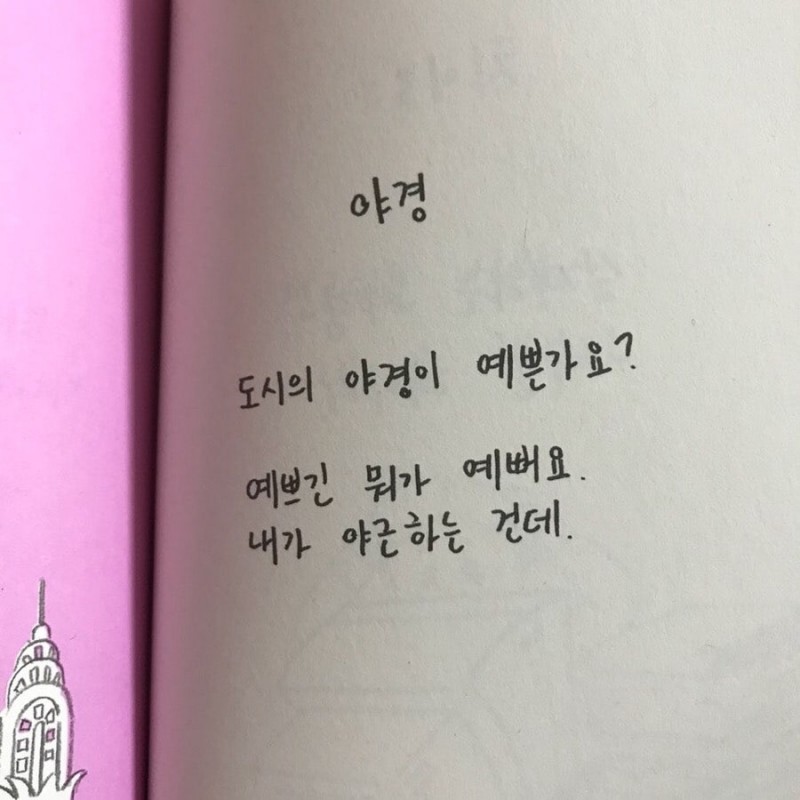 야경
도시의 야경이 예쁜가요?
예쁘긴 뭐가 예뻐요.
내가 야근하는 건데.